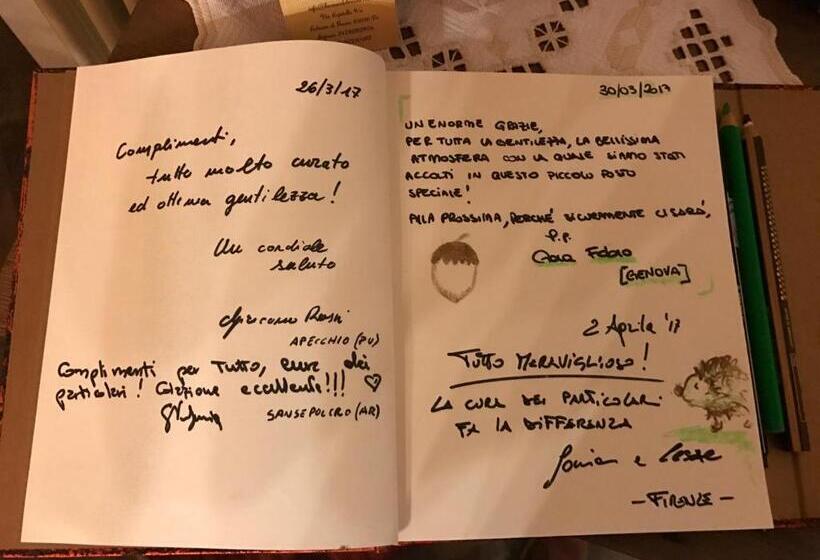 26/3/17
Complimenti,
tutto molto curato
ed ottima gentilezza!
Un cordiale
saluto
Giacomo Rossi
APECCHIO (PU)
Complimenti per Tutto, cura dei
particolari! Colazione eccellente!!!
SANSEPOLCRO (AR)
30/03/2017
UN ENORME GRAZIE,
PER TUTTA LA GENTILEZZA, LA BELLISSIMA
ATMOSFERA CON LA QUALE SIAMO STATI
ACCOLTI IN QUESTO PICCOLO POSTO
SPECIALE!
ALLA PROSSIMA, PERCHÉ SICURAMENTE CI SARÀ,
[GENOVA]
2 Aprile '17
TUTTO MERAVIGLIOSO!
LA CURA DEI PARTICOLARI
FA LA DIFFERENZA
- FIRENZE -